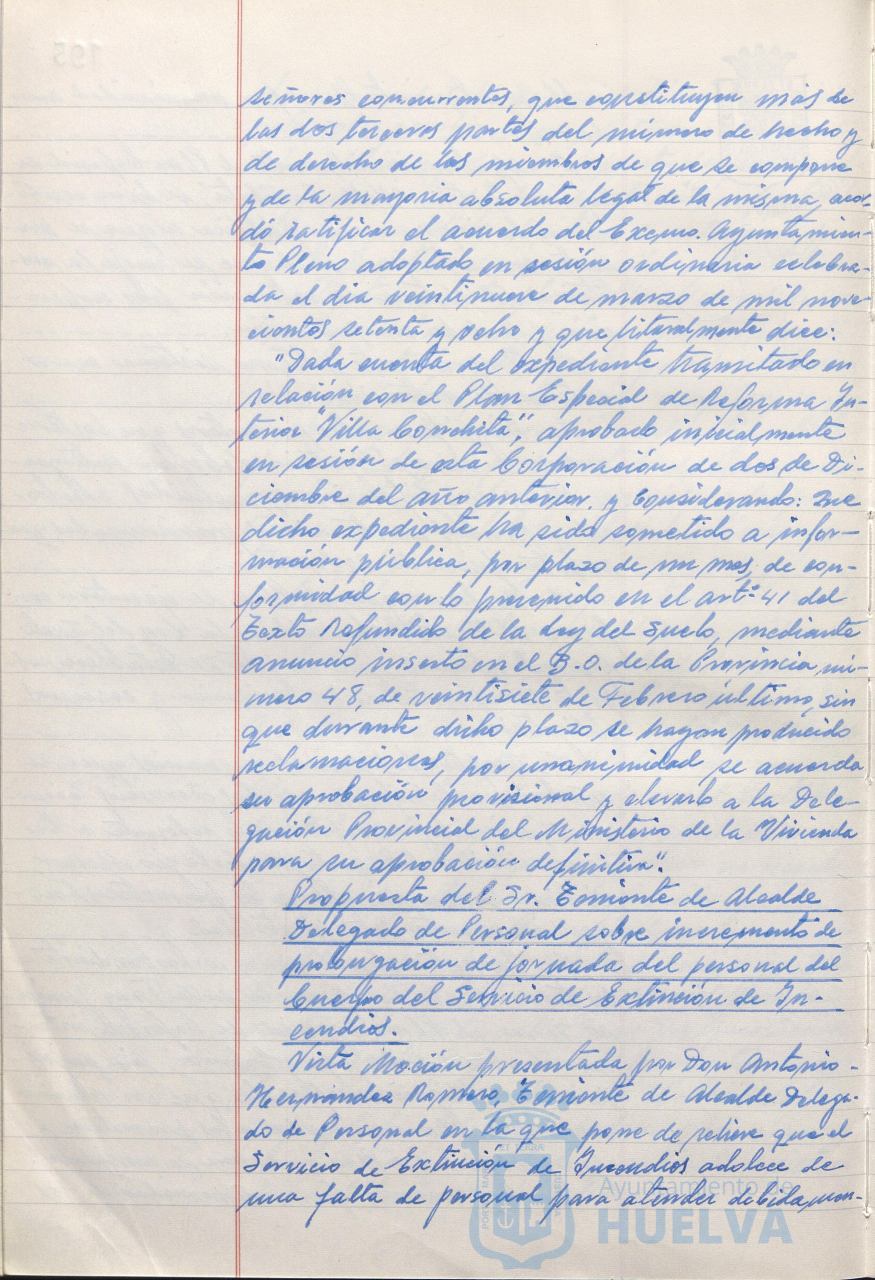 señores concurrentes, que constituyen más de
las dos terceras partes del número de hecho y
de derecho de los miembros de que se compone
y de la mayoría absoluta legal de la misma, acor-
dó ratificar el acuerdo del Excmo. Ayuntamien-
to Pleno adoptado en sesión ordinaria celebra-
da el día veintinueve de marzo de mil nove-
cientos setenta y ocho y que literalmente dice:
"Dada cuenta del expediente tramitado en
relación con el Plan Especial de Reforma In-
terior "Villa Conchita", aprobado inicialmente
en sesión de esta Corporación de dos de Di-
ciembre del año anterior, y Considerando: Que
dicho expediente ha sido sometido a infor-
mación pública, por plazo de un mes, de con-
formidad con lo prevenido en el artº 41 del
Texto Refundido de la Ley del Suelo, mediante
anuncio inserto en el B.O. de la Provincia, nú-
mero 48, de veintisiete de Febrero último, sin
que durante dicho plazo se hayan producido
reclamaciones, por unanimidad se acuerda
su aprobación provisional y elevarlo a la Dele-
gación Provincial del Ministerio de la Vivienda
para su aprobación definitiva".
Propuesta del Sr. Teniente de Alcalde
Delegado de Personal sobre incremento de
prolongación de jornada del personal del
Cuerpo del Servicio de Extinción de In-
cendios.
Vista Moción presentada por Don Antonio
Hernández Romero, Teniente de Alcalde Delega-
do de Personal en la que pone de relieve que el
Servicio de Extinción de Incendios adolece de
una falta de personal para atender debidamen-
Ayuntamiento de
HUELVA